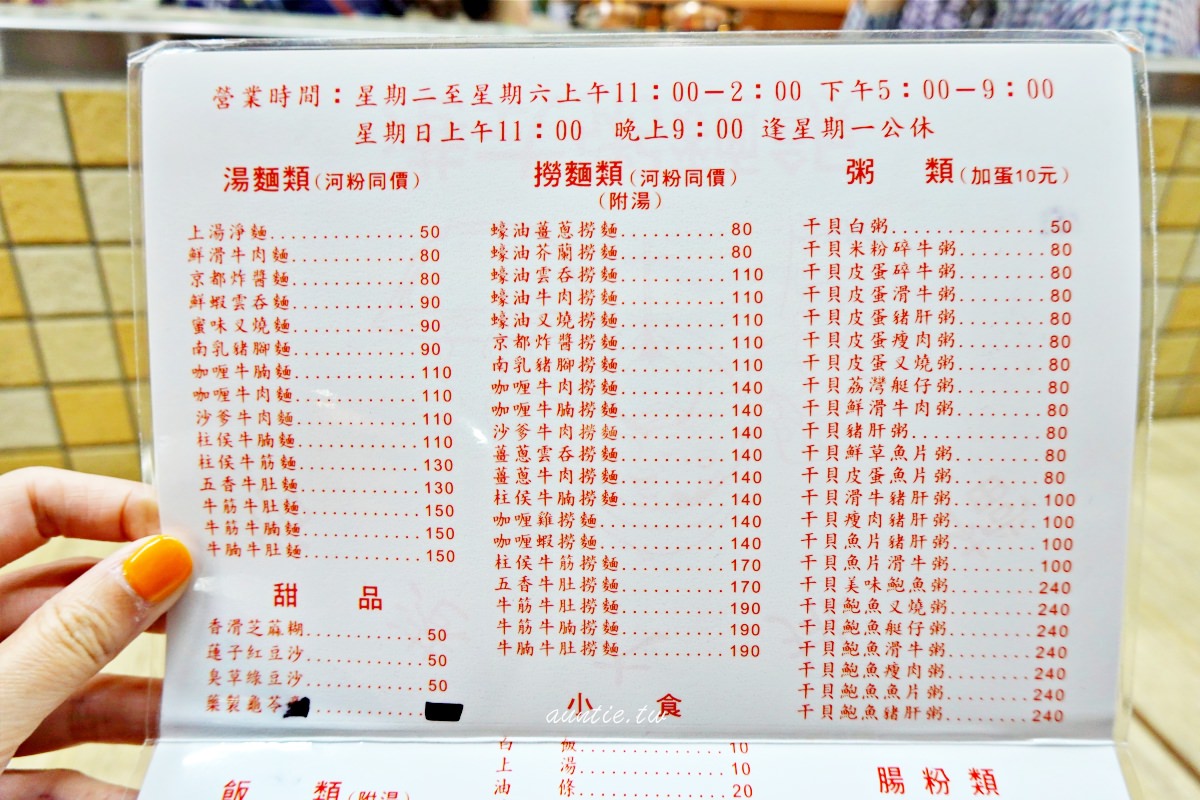 營業時間：星期二至星期六上午11：00－2：00 下午5：00－9：00
星期日上午11：00 晚上9：00 逢星期一公休
湯麵類(河粉同價)
上湯淨麵..............50
鮮滑牛肉麵............80
京都炸醬麵............80
鮮蝦雲吞麵............90
蜜味叉燒麵............90
南乳豬腳麵............90
咖喱牛腩麵............110
咖喱牛肉麵............110
沙爹牛肉麵............110
柱侯牛腩麵............110
柱侯牛筋麵............130
五香牛肚麵............130
牛筋牛肚麵............150
牛筋牛腩麵............150
牛腩牛肚麵............150
甜 品
香滑芝蔴糊............50
蓮子紅豆沙............50
臭草綠豆沙............50
藥製龜苓
撈麵類(河粉同價)
(附湯)
蠔油薑蔥撈麵..........80
蠔油芥蘭撈麵..........80
蠔油雲吞撈麵..........110
蠔油牛肉撈麵..........110
蠔油叉燒撈麵..........110
京都炸醬撈麵..........110
南乳豬腳撈麵..........110
咖喱牛肉撈麵..........140
咖喱牛腩撈麵..........140
沙爹牛肉撈麵..........140
薑蔥雲吞撈麵..........140
薑蔥牛肉撈麵..........140
柱侯牛腩撈麵..........140
咖喱雞撈麵............140
咖喱蝦撈麵............140
柱侯牛筋撈麵..........170
五香牛肚撈麵..........170
牛筋牛肚撈麵..........190
牛筋牛腩撈麵..........190
牛腩牛肚撈麵..........190
小 食
auntie.tw
白 飯..............10
上 湯..............10
油 條..............20
粥 類(加蛋10元)
干貝白粥..............50
干貝米粉碎牛粥........80
干貝皮蛋碎牛粥........80
干貝皮蛋滑牛粥........80
干貝皮蛋豬肝粥........80
干貝皮蛋瘦肉粥........80
干貝皮蛋叉燒粥........80
干貝荔灣艇仔粥........80
干貝鮮滑牛肉粥........80
干貝豬肝粥............80
干貝鮮草魚片粥........80
干貝皮蛋魚片粥........80
干貝滑牛豬肝粥........100
干貝瘦肉豬肝粥........100
干貝魚片豬肝粥........100
干貝魚片滑牛粥........100
干貝美味鮑魚粥........240
干貝鮑魚叉燒粥........240
干貝鮑魚艇仔粥........240
干貝鮑魚滑牛粥........240
干貝鮑魚瘦肉粥........240
干貝鮑魚魚片粥........240
干貝鮑魚豬肝粥........240
飯 類(附湯)
腸粉類